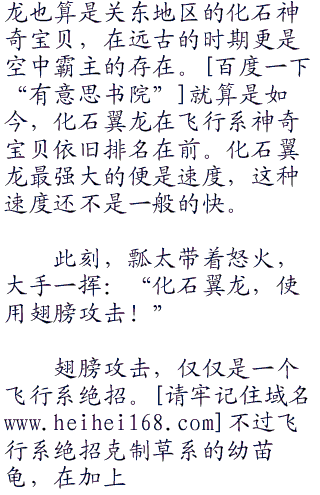 龙也算是关东地区的化石神
奇宝贝，在远古的时期更是
空中霸主的存在。[百度一下
“有意思书院”]就算是如
今，化石翼龙在飞行系神奇
宝贝依旧排名在前。化石翼
龙最强大的便是速度，这种
速度还不是一般的快。
此刻，瓢太带着怒火，
大手一挥：“化石翼龙，使
用翅膀攻击！”
翅膀攻击，仅仅是一个
飞行系绝招。[请牢记住域名
www.heihei168.com]不过飞
行系绝招克制草系的幼苗
龟，在加上